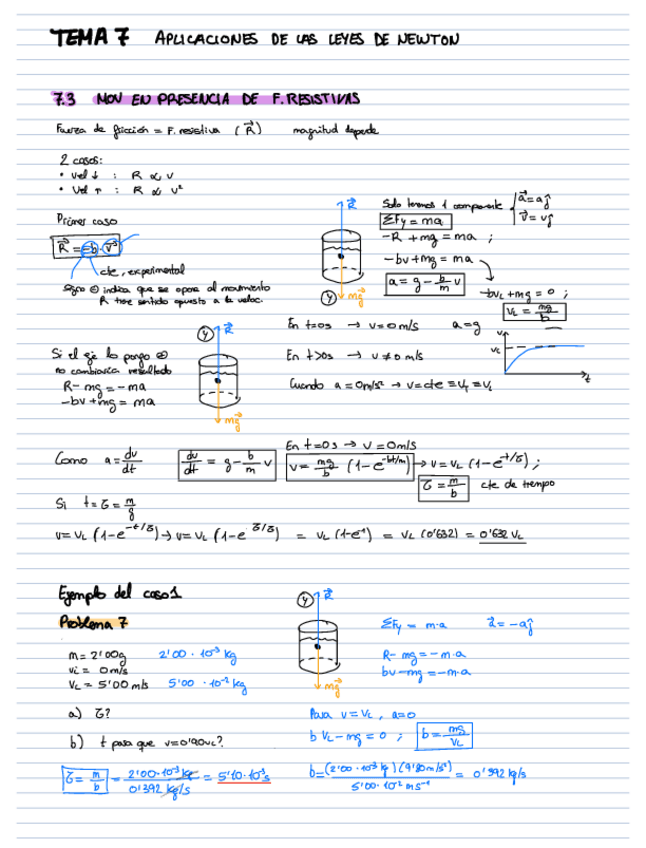 TEMA 7 APLICACIONES DE LAS LEYES DE NEWTON
7.3 MOV EN PRESENCIA DE F. RESISTIVAS
Fuerza de fricción = F. resistiva (R⃗) magnitud depende
2 casos:
• Vel ↓ : R ∝ v
• Vel ↑ : R ∝ v²
Primer caso
R⃗ = -b · v⃗
cte, experimental
signo ⊖ indica que se opone al movimiento
R tiene sentido opuesto a la veloc.
R⃗
mg⃗
y
Solo tenemos 1 componente { a⃗ = aĵ
v⃗ = vĵ
ΣFy = ma
-R + mg = ma ;
-bv + mg = ma
a = g - b/m v
-bvL + mg = 0 ;
vL = mg/b
En t=0s → v = 0 m/s a = g
En t>0s → v ≠ 0 m/s
Cuando a = 0 m/s² → v = cte ≡ vf = vL
v
vL
t
Si el eje lo pongo ⊕
no cambiaría resultado
R - mg = -ma
-bv + mg = ma
y
R⃗
mg⃗
En t=0s → v = 0 m/s
Como a = dv/dt
dv/dt = g - b/m v
v = mg/b (1 - e^-bt/m) → v = vL (1 - e^-t/τ) ;
τ = m/b cte de tiempo
Si t = τ = m/g
v = vL (1 - e^-t/τ) → v = vL (1 - e^-τ/τ) = vL (1 - e^-1) = vL (0'632) = 0'632 vL
Ejemplo del caso 1
Problema 7
y
R⃗
mg⃗
ΣFy = m·a a⃗ = -aĵ
m = 2'00g 2'00 · 10^-3 kg
vi = 0 m/s
vL = 5'00 m/s 5'00 · 10^-2 kg
R - mg = -m·a
bv - mg = -m·a
a) τ?
b) t para que v = 0'90vL?
Para v = vL , a = 0
b vL - mg = 0 ; b = mg/vL
τ = m/b = 2'00·10^-3 kg / 0'392 kg/s = 5'10·10^-3 s
b = (2'00·10^-3 kg)(9'80 m/s²) / 5'00·10^-2 ms^-1 = 0'392 kg/s